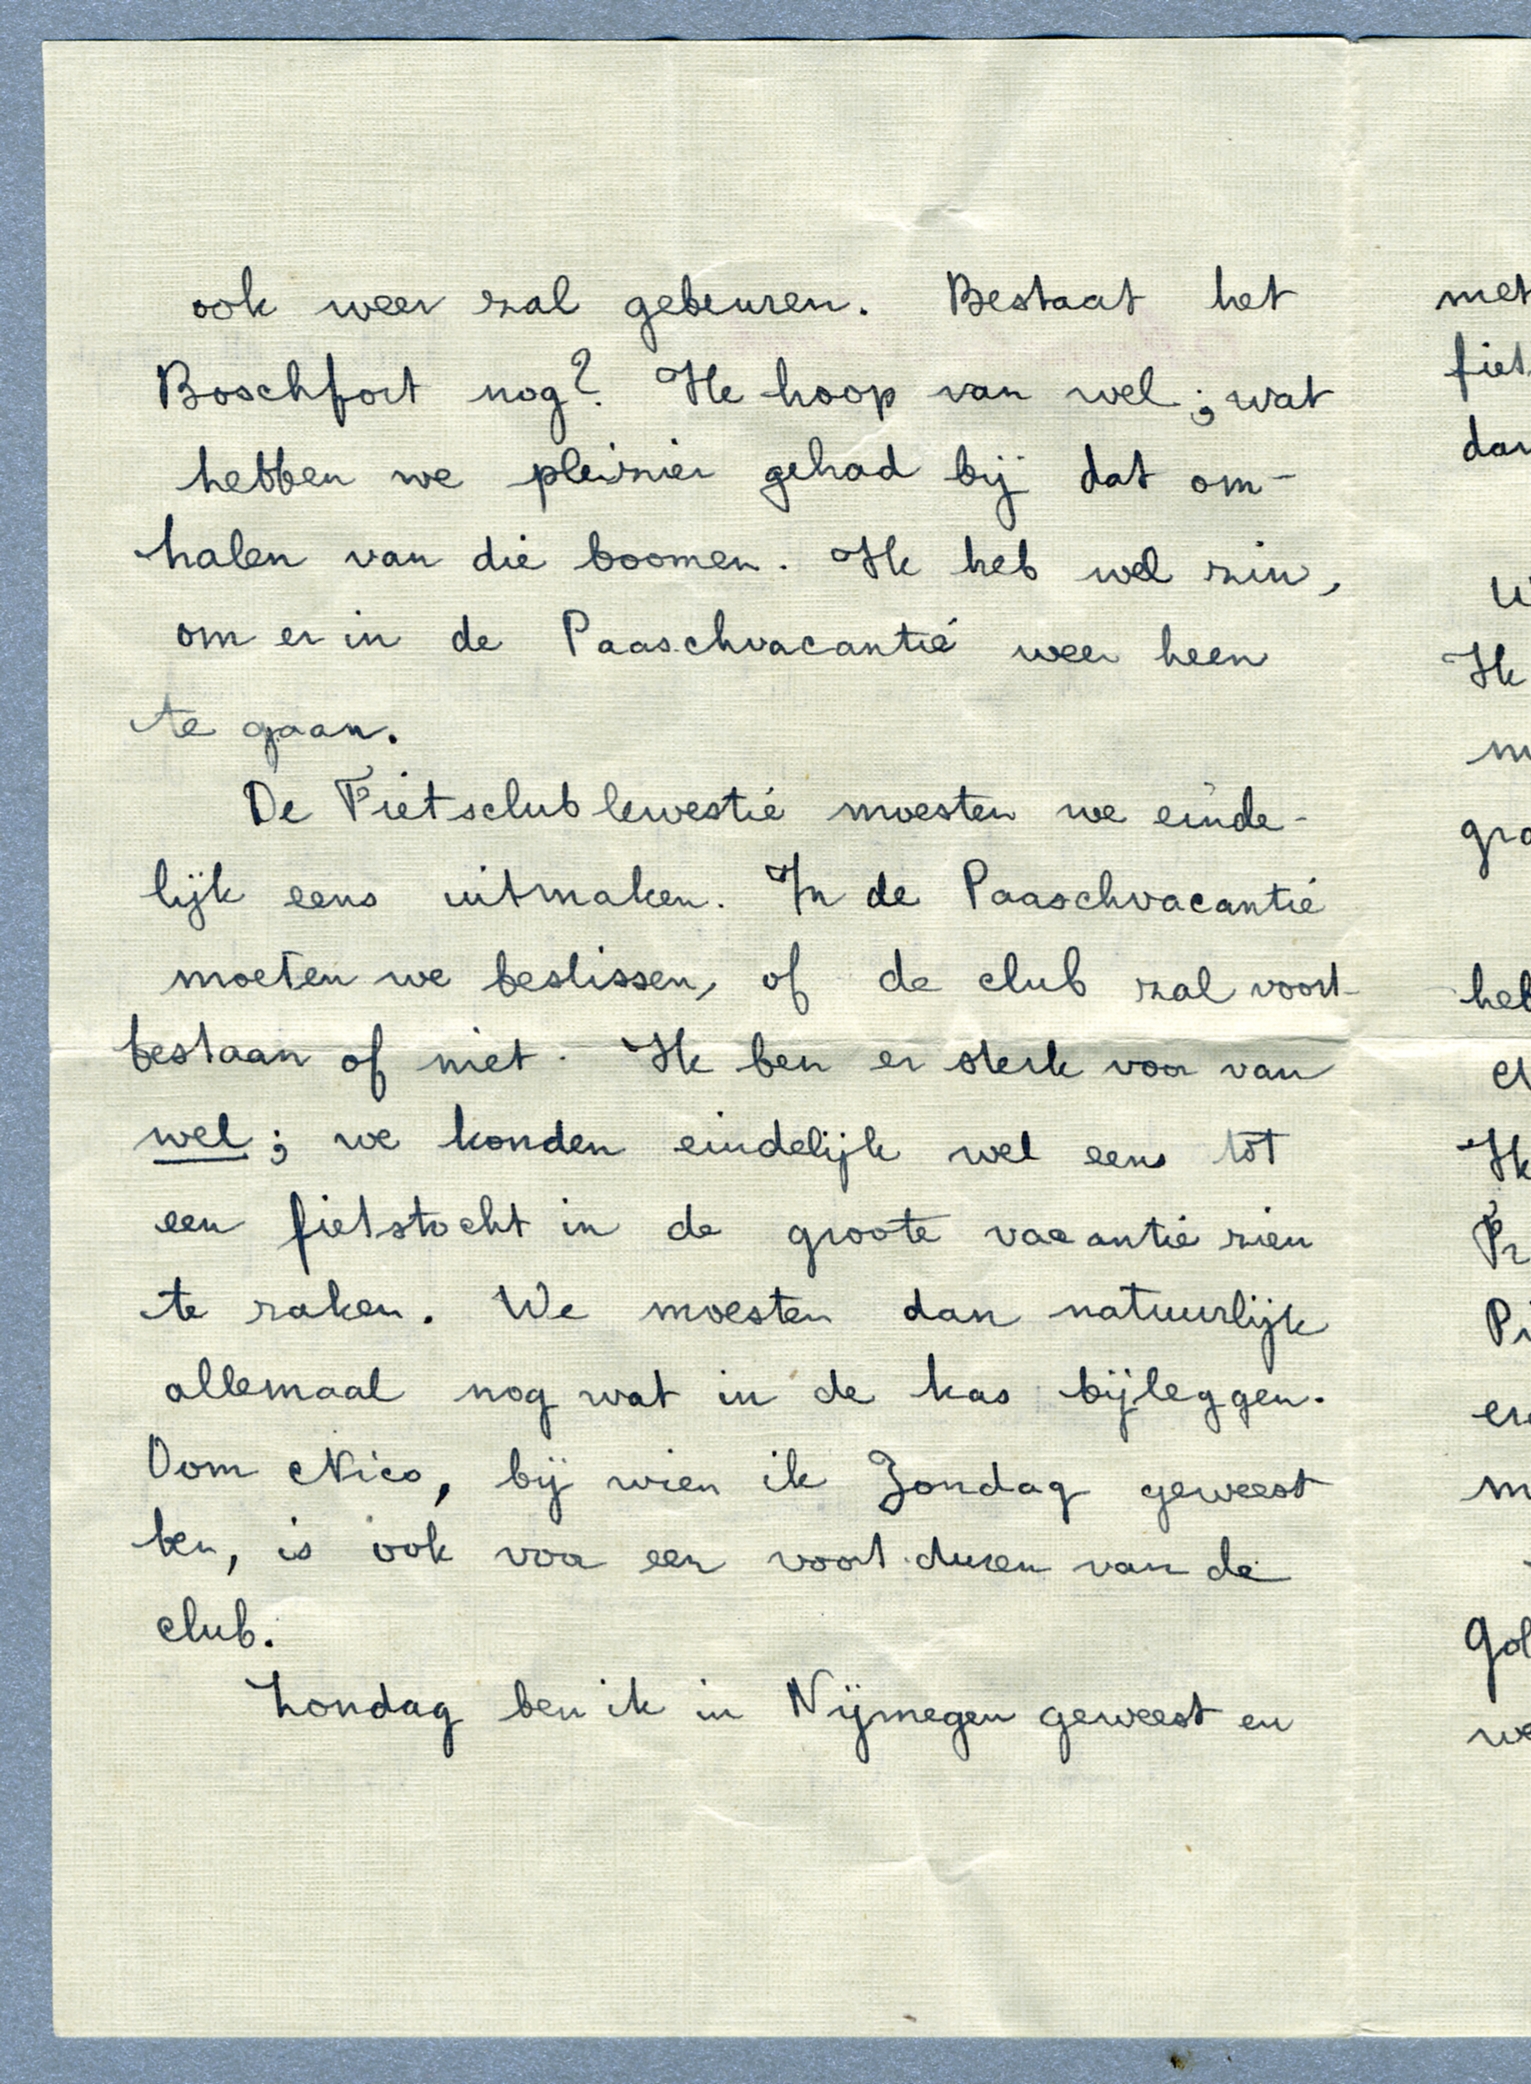 ook weer zal gebeuren. Bestaat het
Boschfort nog? Ik hoop van wel; wat
hebben we pleizier gehad bij dat om-
halen van die boomen. Ik heb wel zin,
om er in de Paaschvacantie weer heen
te gaan.
De Fietsclubkwestie moesten we einde-
lijk eens uitmaken. In de Paaschvacantie
moeten we beslissen, of de club zal voort-
bestaan of niet. Ik ben er sterk voor van
wel; we konden eindelijk wel eens tot
een fietstocht in de groote vacantie zien
te raken. We moesten dan natuurlijk
allemaal nog wat in de kas bijleggen.
Oom Nico, bij wien ik Zondag geweest
ben, is ook voor een voortduren van de
club.
Zondag ben ik in Nijmegen geweest en
met
fiet
dan
Ik
m
gro
heb
Ik
Pr
Pi
m
Gol
we